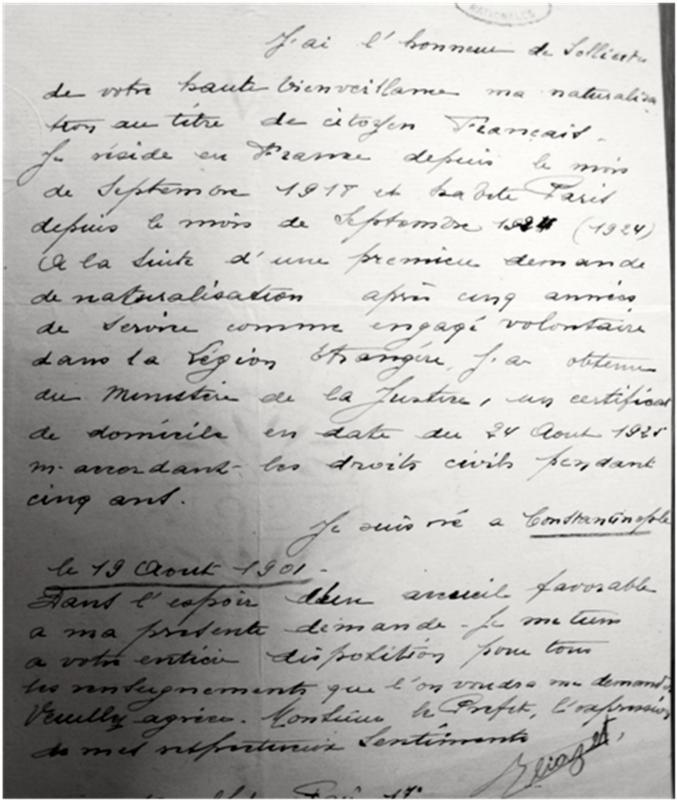 NATIONALES
J'ai l'honneur de Solliciter
de votre haute bienveillance ma naturalisa
tion au titre de citoyen Français.
Je réside en France depuis le mois
de Septembre 1918 et habite Paris
depuis le mois de Septembre 1924 (1924)
A la suite d'une première demande
de naturalisation après cinq années
de service comme engagé volontaire
dans la Légion Etrangère, j'ai obtenu
du Ministère de la Justice, un certificat
de domicile en date du 24 Aout 1925
m'accordant les droits civils pendant
cinq ans.
Je suis né a Constantinople
le 19 Aout 1901.
Dans l'espoir d'un accueil favorable
a ma présente demande. Je me tiens
a votre entière disposition pour tous
les renseignements que l'on voudra me demander
Veuillez agréer. Monsieur le Prefet, l'expression
de mes respectueux Sentiments